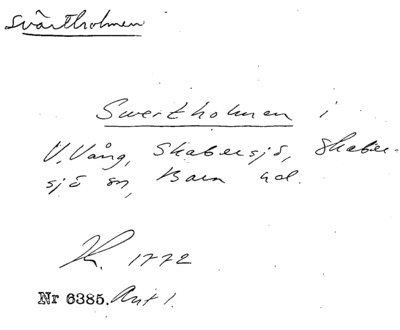 Svärtholmen
Swertholmen i
V. Vång, Skabersjö, Skaber-
sjö sn, Bara hd.
K. 1772
Nr 6385. Art 1.